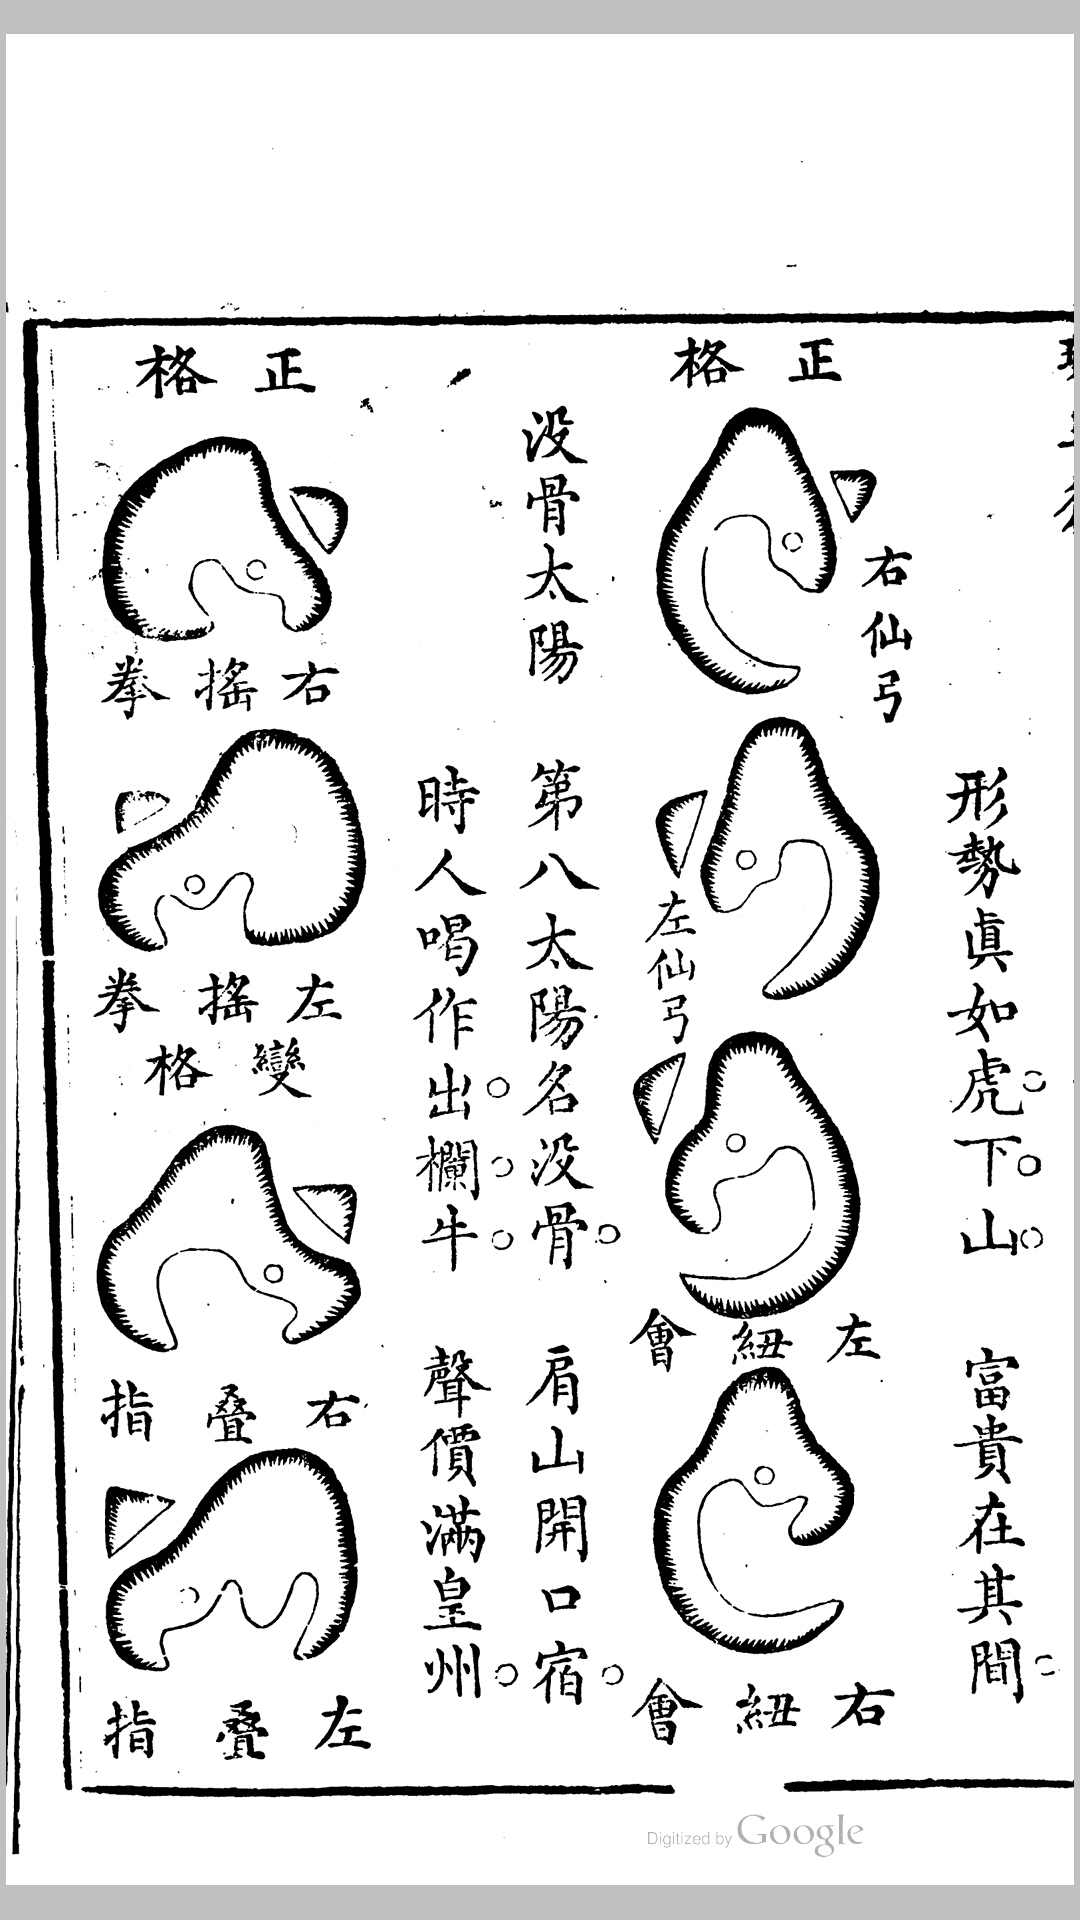 形勢眞如虎下山 富貴在其間
正格
右仙弓
左仙弓
左紐會
右紐會
没骨太陽 第八太陽名没骨 肩山開口宿
時人喝作出欄牛 聲價滿皇州
正格
右搖拳
左搖拳
變格
右疊指
左疊指
Digitized by Google